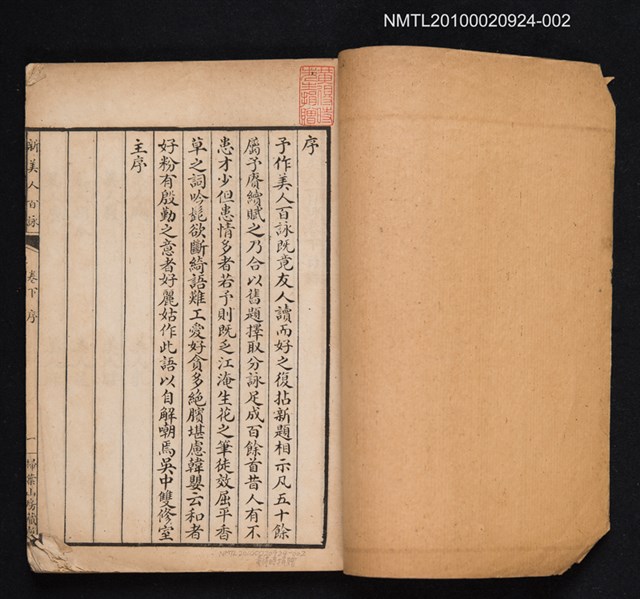 NMTL20100020924-002
序
予作美人百詠既竟友人讀而好之復拈新題相示凡五十餘
屬予賡續賦之乃合以舊題擇取分詠足成百餘首昔人有不
患才少但患情多者若予則既乏江淹生花之筆徒效屈平香
草之詞吟髭欲斷綺語難工愛好貪多絕臏堪慮韓嬰云和者
好粉有殷勤之意者好麗姑作此語以自解嘲焉吳中雙修室
主序
新美人百詠
卷下 序
一
掃葉山房藏
NMTL20100020924-002